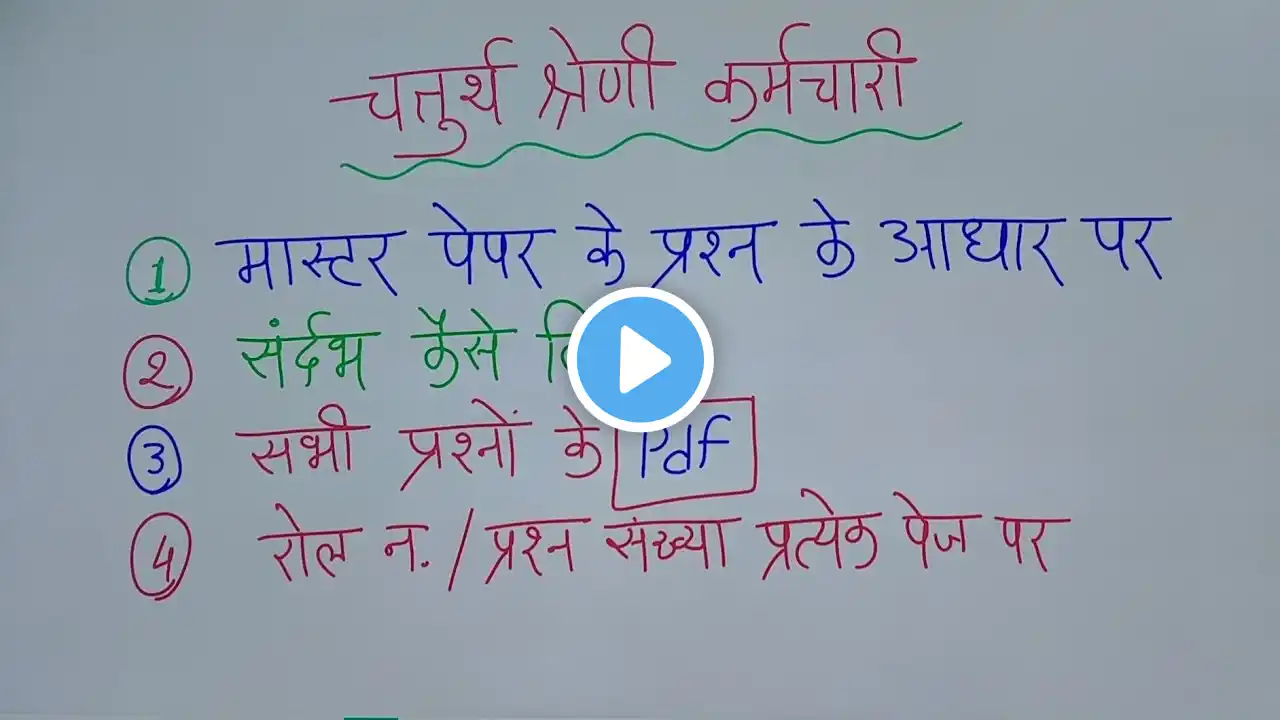 चतुर्थ श्रेणी कर्मचारी
1 मास्टर पेपर के प्रश्न के आधार पर
2 संर्दभ कैसे
3 सभी प्रश्नों के Pdf
4 रोल न. / प्रश्न संख्या प्रत्येक पेज पर